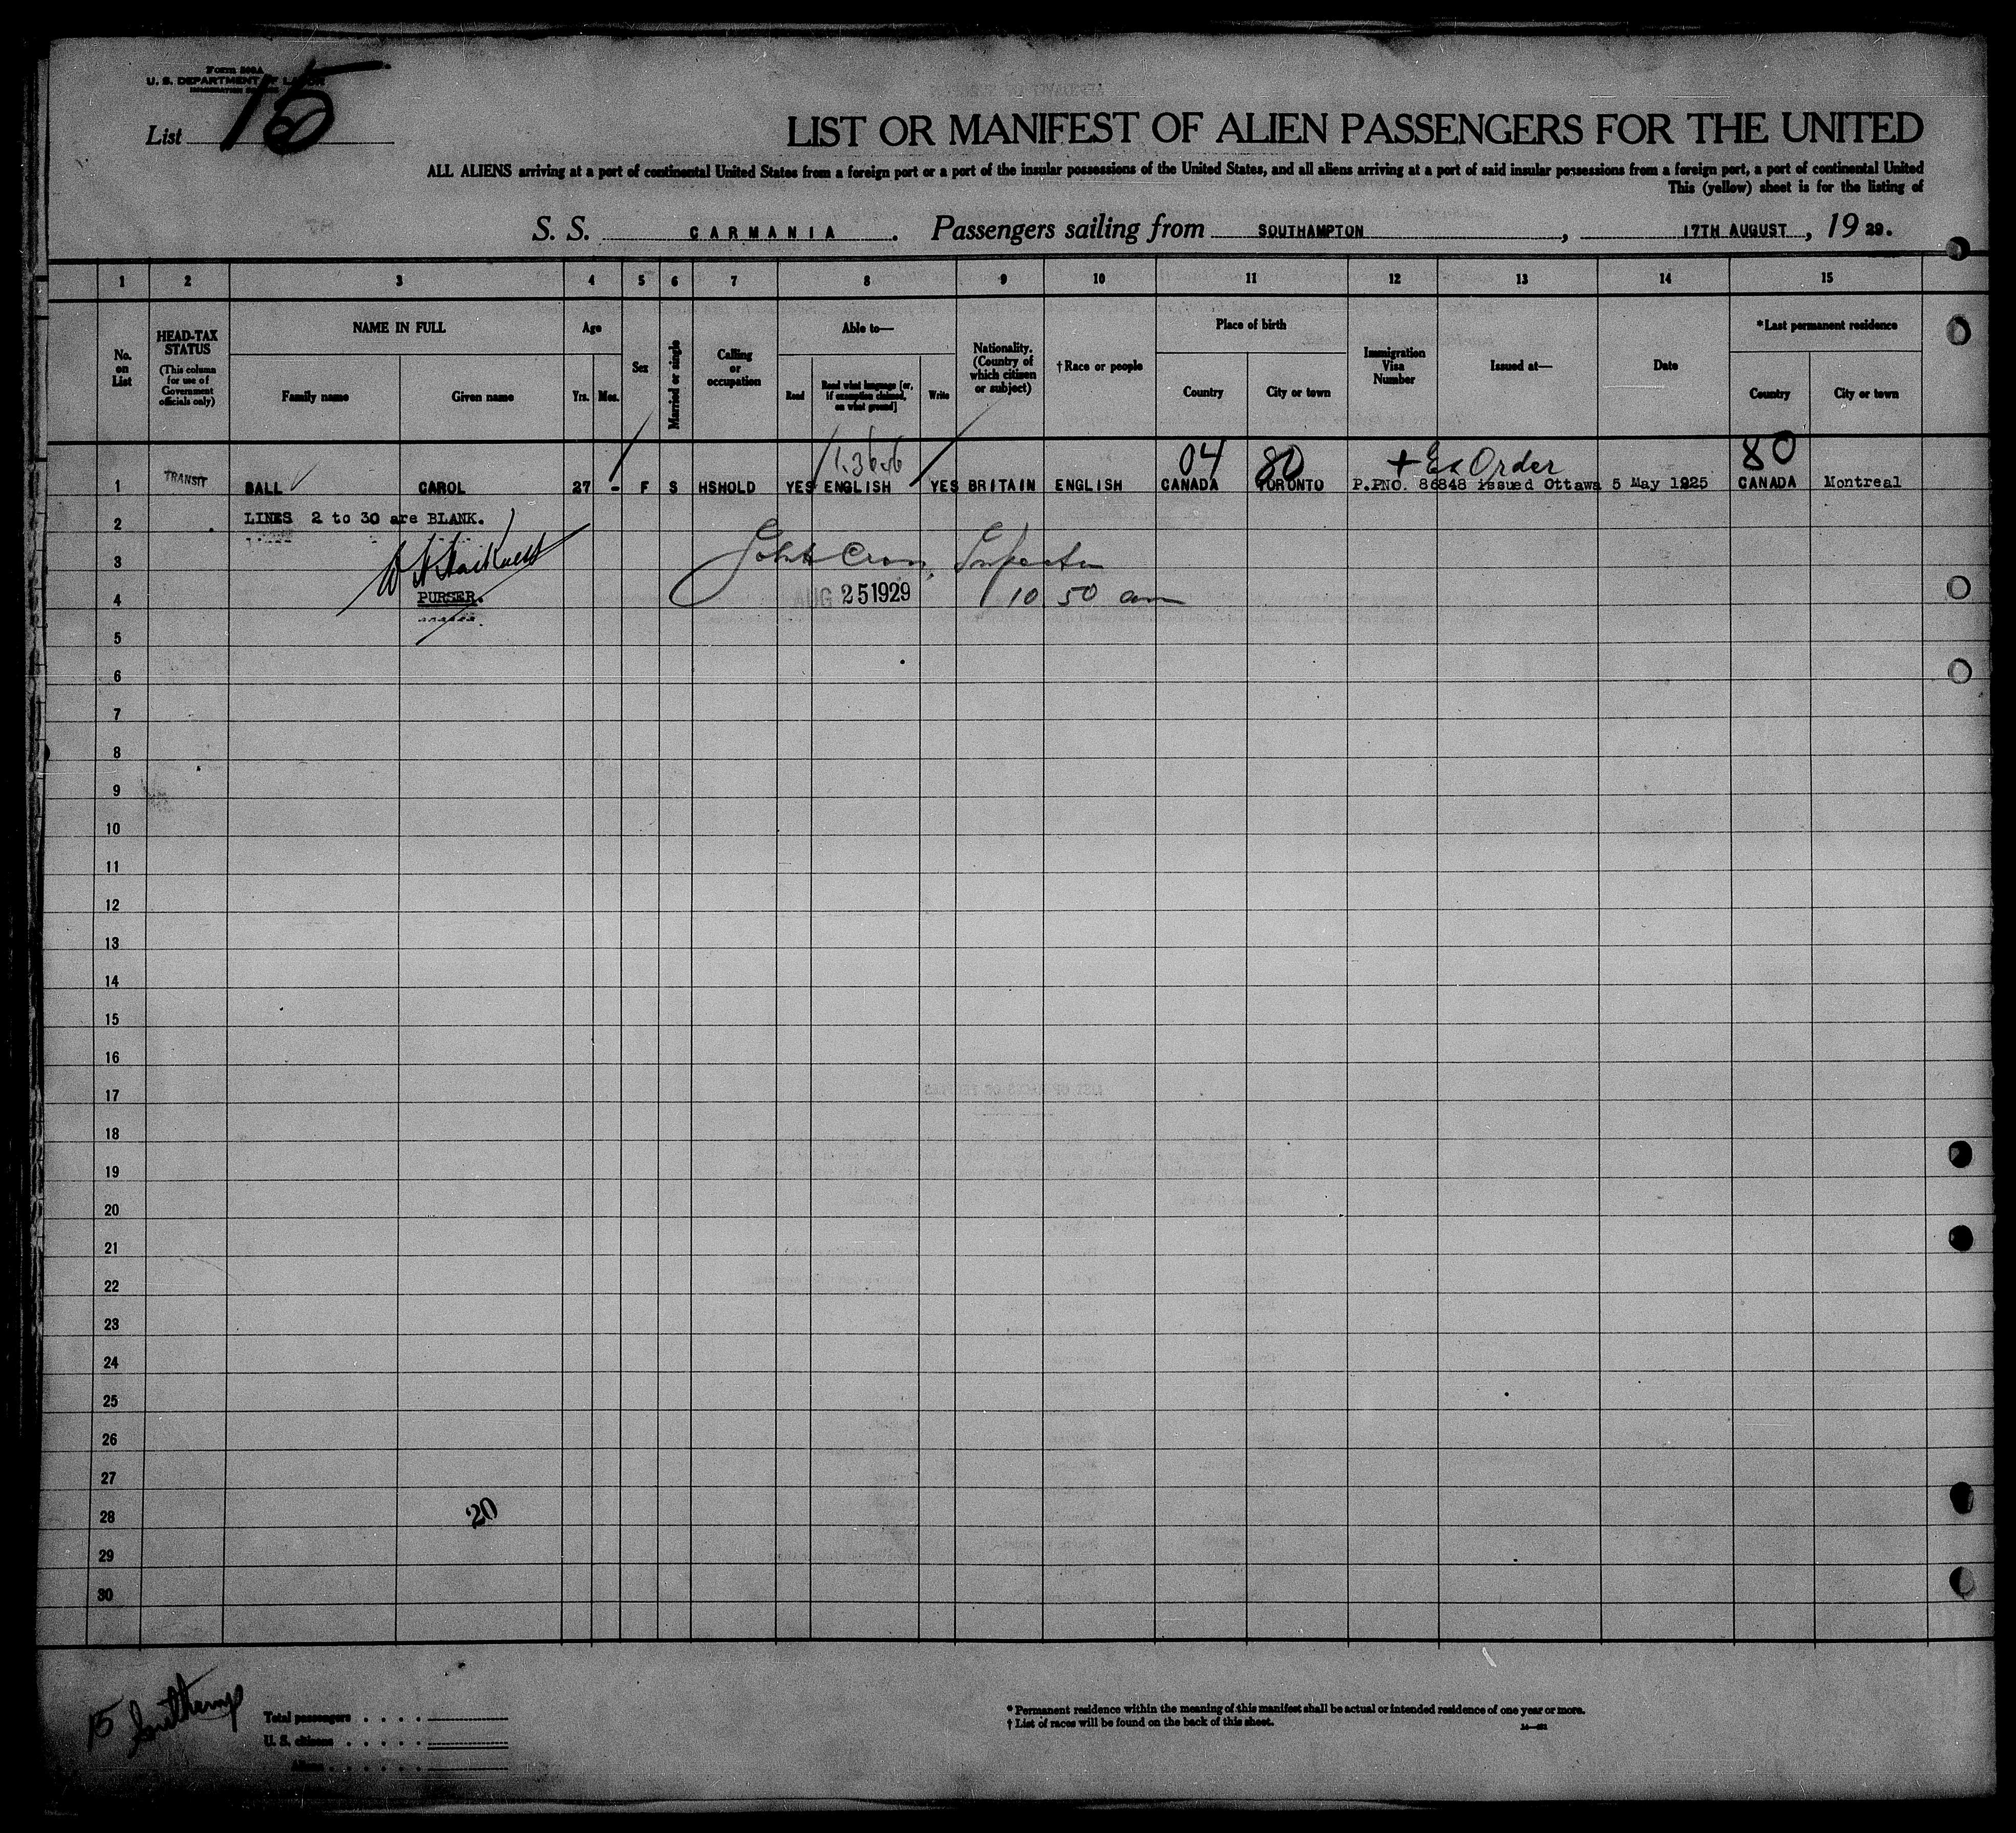 Form 500A
U. S. DEPARTMENT OF LABOR
List 15
LIST OR MANIFEST OF ALIEN PASSENGERS FOR THE UNITED
ALL ALIENS arriving at a port of continental United States from a foreign port or a port of the insular possessions of the United States, and all aliens arriving at a port of said insular possessions from a foreign port, a port of continental United
This (yellow) sheet is for the listing of
S. S. CARMANIA. Passengers sailing from SOUTHAMPTON, 17TH AUGUST, 19 29.
1 2 3 4 5 6 7 8 9 10 11 12 13 14 15
No. on List
HEAD-TAX STATUS (This column for use of Government officials only)
NAME IN FULL
Family name Given name
Age
Yrs. Mos.
Sex
Married or single
Calling or occupation
Able to—
Read Read what language [or, if exemption claimed, on what ground] Write
Nationality. (Country of which citizen or subject)
†Race or people
Place of birth
Country City or town
Immigration Visa Number
Issued at—
Date
*Last permanent residence
Country City or town
04 80 + Ex Order 80
1 TRANSIT BALL CAROL 27 - F S HSHOLD YES ENGLISH YES BRITAIN ENGLISH CANADA TORONTO P.PNO. 86848 issued Ottawa 5 May 1925 CANADA Montreal
2 LINES 2 to 30 are BLANK.
3 Inspector
4 PURSER. AUG 25 1929 10 50 am
5
6
7
8
9
10
11
12
13
14
15
16
17
18
19
20
21
22
23
24
25
26
27
28 20
29
30
15 Southamp
Total passengers
U. S. citizens
Aliens
* Permanent residence within the meaning of this manifest shall be actual or intended residence of one year or more.
† List of races will be found on the back of this sheet.